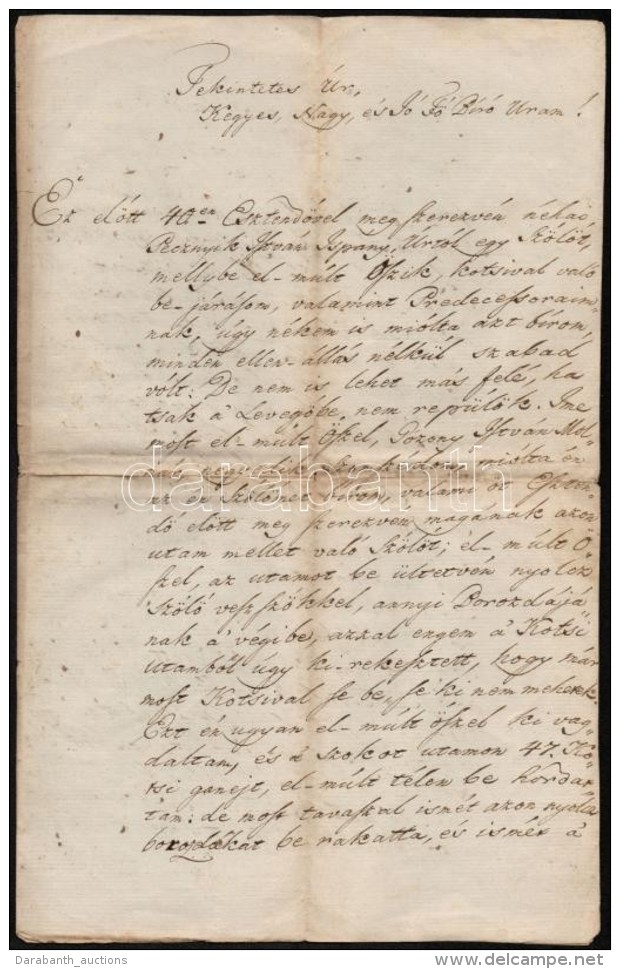 Tekintetes Úr,
Kegyes, Nagy, és Jó Fő Biró Uram!
Ez előtt 40en Esztendővel meg szerezvén néhai
Pecznyik István Ispány Úrtól egy Szőlőt,
mellybe el-múlt Őszik, kotsival való
be-járásom, valamint Predecessoraim-
nak, úgy nékem is miólta azt bírom,
minden ellen-állás nélkűl szabad
vólt: De nem is lehet más felé, ha
tsak á Levegőbe nem repűlők. Ime
most el-múlt Őszel, Pozony István Mol-
nár, negyedik miólta én
ezen Szőlőnek bírom, valami öt Eszten-
dő előtt meg szerezvén magának azon
utam mellet való Szőlőt; el-múlt Ő-
szel, az utamot be ültetvén nyolcz
szőlő veszszőkkel, annyi Borozdájá-
nak á végibe, azzal engem á Kotsi
utamból úgy ki-rekesztett, hogy már
most Kotsival se be, se ki nem mehetek.
Ezt én ugyan el-múlt őszel ki vag-
daltam, és á szokot utamon 47. Ko-
tsi ganéjt, el-múlt télen be hordat-
tam: de most tavaszal ismét azon nyolcz
borozdákat be rakatta, és ismét á
Darabanth
Darabanth_auctions
www.delcampe.net